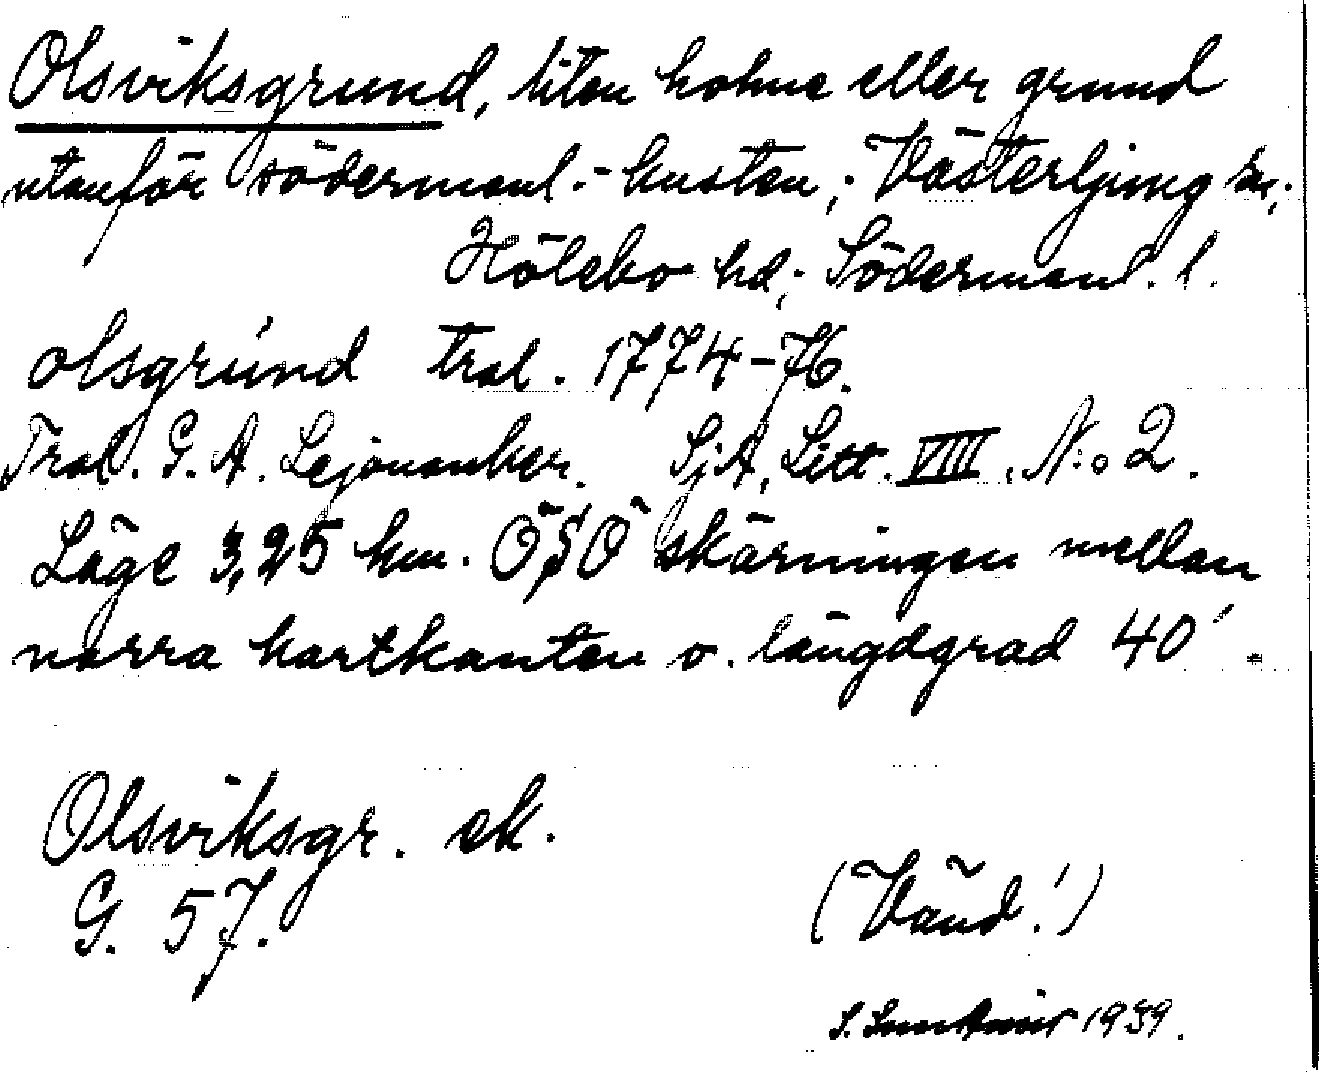 Olsviksgrund, liten holme eller grund
utanför södermanl.-kusten; Västerljung sn;
Hölebo hd; Södermanl. l.
olsgrúnd tral. 1774-76.
Tral. G. A. Lejonanker. SjA, Litt. VIII. N:o 2.
Läge 3,25 km. ÖSÖ skärningen mellan
norra kartkanten o. längdgrad 40'.
Olsviksgr. ek.
G. 57.
(Vänd!)
S. 1939.